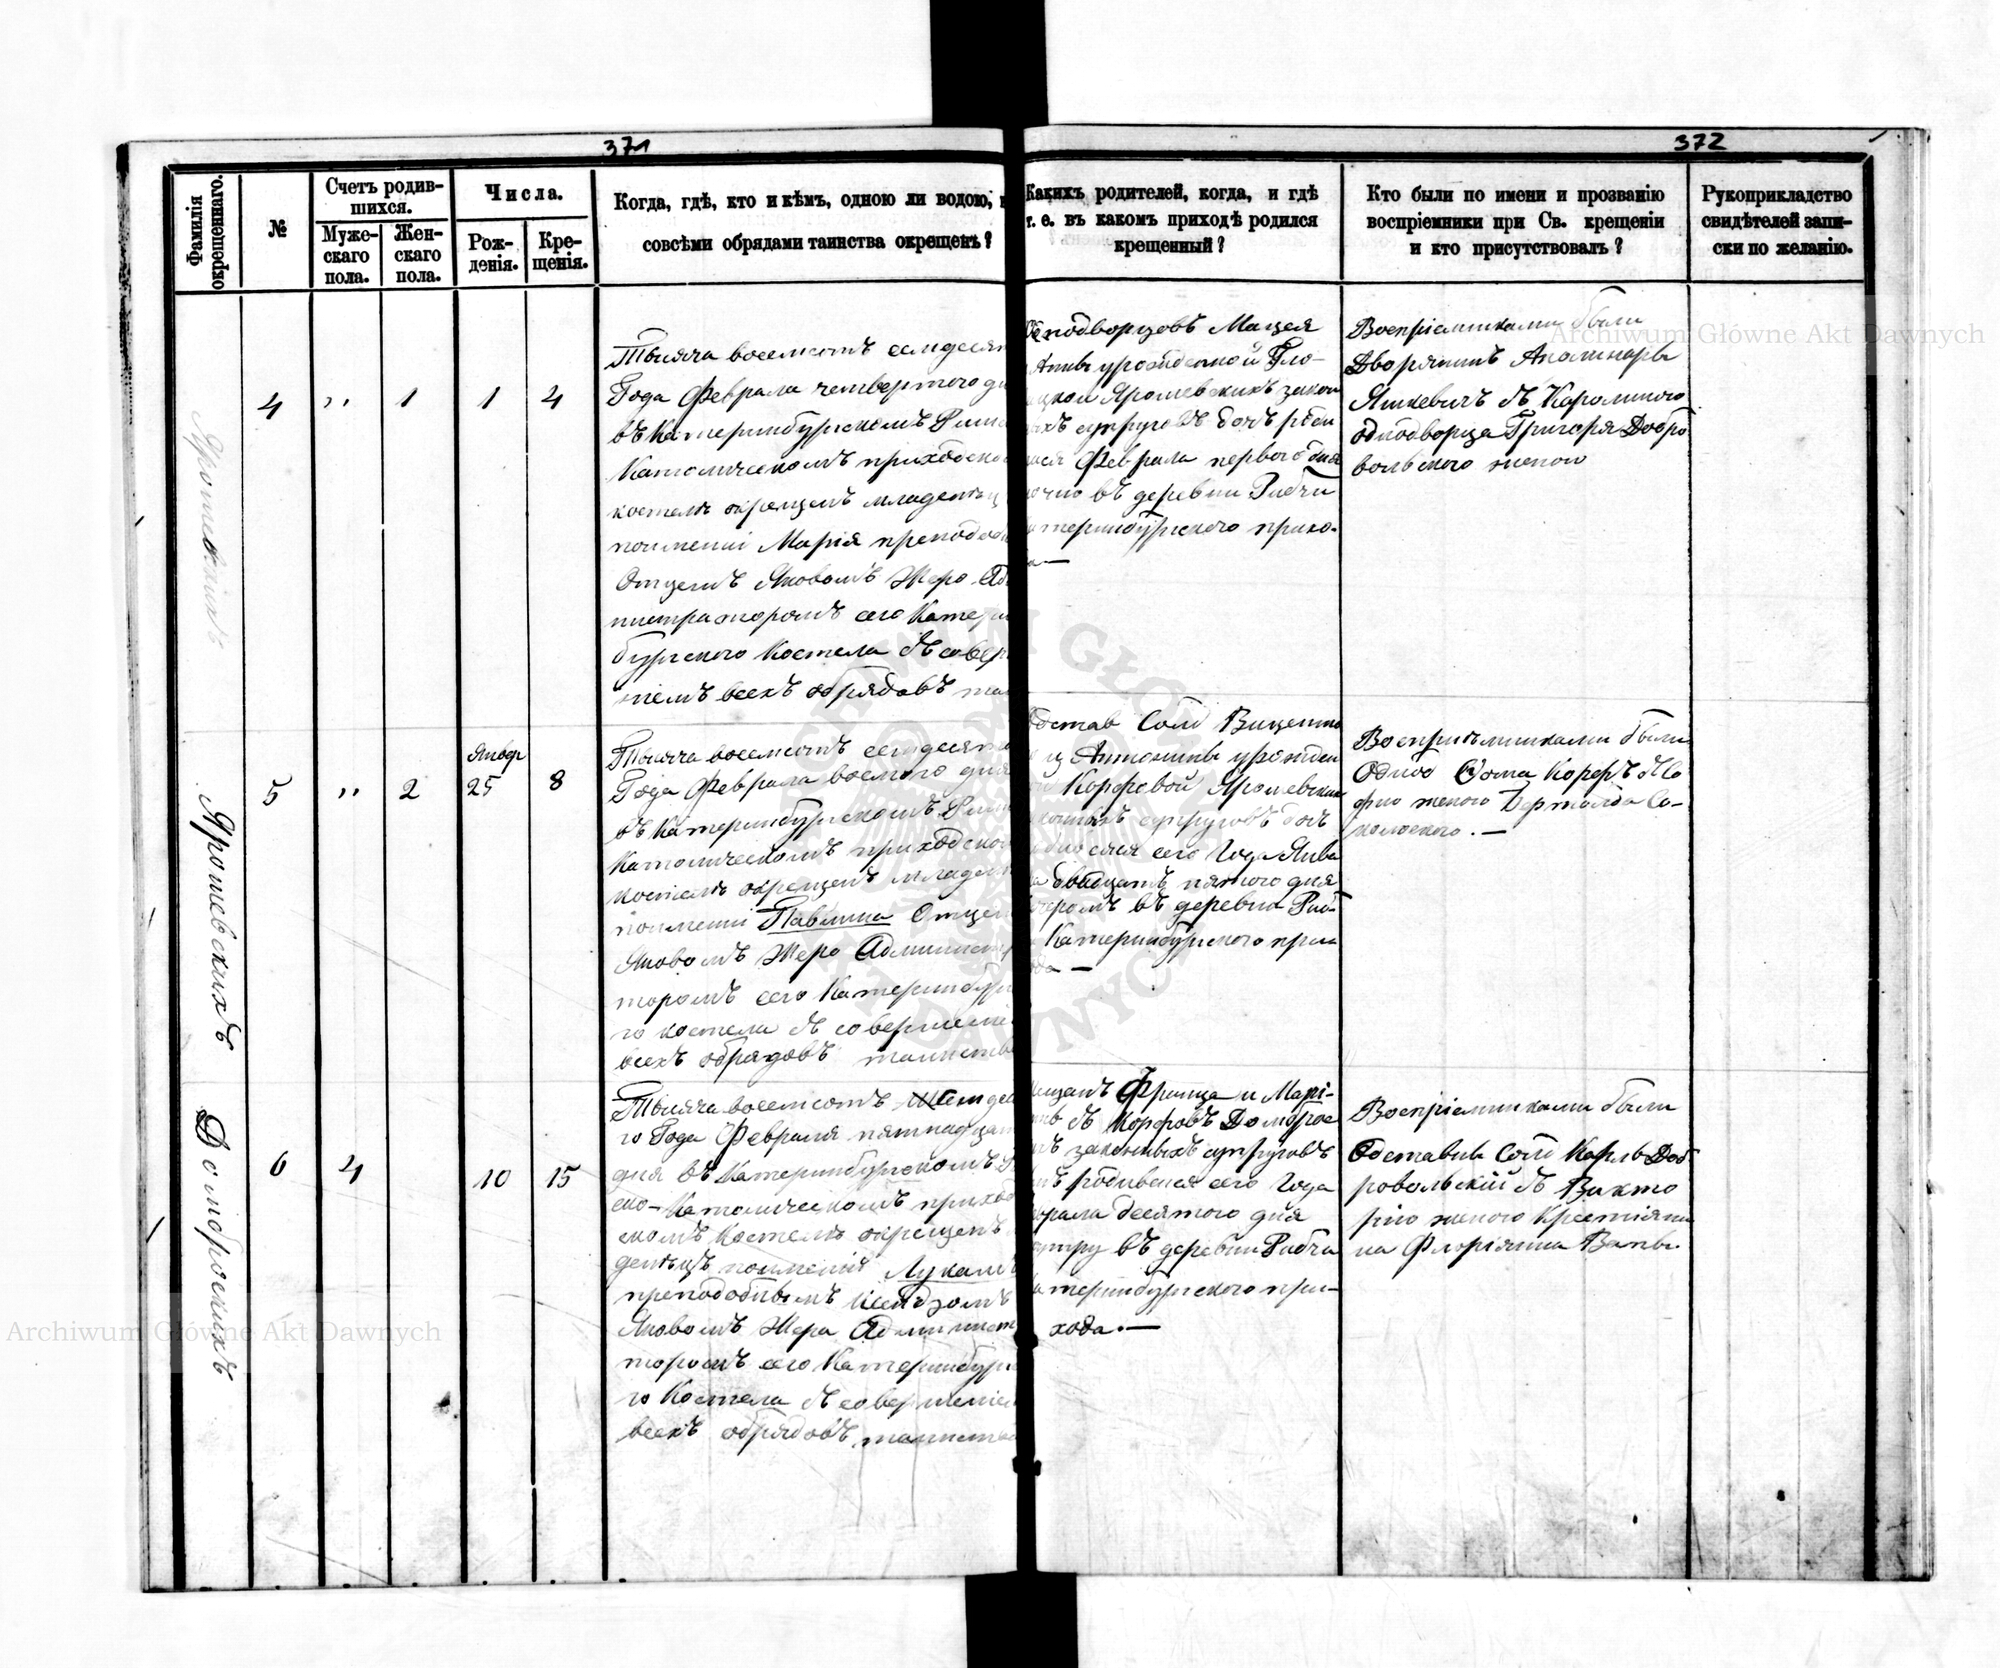 371
372
Фамилія окрещеннаго.
№
Счетъ родив-
шихся.
Муже-
скаго
пола.
Жен-
скаго
пола.
Числа.
Рож-
денія.
Кре-
щенія.
Когда, гдѣ, кто и кѣмъ, одною ли водою,
совсѣми обрядами таинства окрещенъ?
Какихъ родителей, когда, и гдѣ
т. е. въ какомъ приходѣ родился
крещенный?
Кто были по имени и прозванію
воспріемники при Св. крещеніи
и кто присутствовалъ?
Рукоприкладство
свидѣтелей запи-
ски по желанію.
4
1
1
4
Тысяча восемсотъ семдесят
Года Февраля четвертого д
въ Катеринбургскомъ Рим
Католическомъ приходско
костелѣ окрещенъ младенец
поименни Марія преподоб
Отцемъ Яковомъ Жеро Ад
нистраторомъ сего Катери
бургского Костела съ совер
ніемъ всехъ обрядовъ таи
Однодворцовъ Мацея
Анны урожденной Гло-
цкой Ярошевскихъ закон
ыхъ супруговъ дочь роди
лася Февраля первого дня
ночью въ деревни Рибчи
атеринбургского прихо-
а—
Воспріемниками были
Дворянинъ Аполинарь
Яцкевичъ съ Каролиною
однодворца Григоря Добро
вольского женою
Ярошевскихъ
5
2
Январ
25
8
Тысяча восемсотъ семдесято
Года Февраля восмого дня
въ Катеринбургскомъ Рим
Католическомъ приходском
костелѣ окрещенъ младен
поименни Павлина Отцем
Яковомъ Жеро Администр
торомъ сего Катеринбург
го костела съ совершені
всехъ обрядовъ таинства
Отстав Солд Вицента
и Антонины урожден
Корфовой Ярошевских
аконныхъ супруговъ дочь
одилася сего Года Янва
ра двадцатъ пятого дня
чером въ деревни Риб-
Катеринбургского при
ода —
Воспріемниками были
Однод Фома Корфъ съ Со
фіею женою Бертолда Со-
коловского. —
Домброскихъ
6
4
10
15
Тысяча восемсотъ семдес
го Года Февраля пятнадцат
дня въ Катеринбургскомъ Р
ско-Католическомъ приход
скомъ Костелѣ окрещенъ
денецъ поименни Лукашъ
преподобнымъ Ксендзомъ
Яковомъ Жеро Администр
торомъ сего Катеринбург
го Костела съ совершеніем
всехъ обрядовъ таинства
Мещанъ Франца и Марі-
ны съ Корфовъ Домброс
хъ законныхъ супруговъ
нъ родивсися сего Года
враля десятого дня
утру въ деревни Рибча
атеринбургского при-
хода. —
Воспріемниками были
Отставны Солд Карль Доб
ровольскій съ Викто
ріею женою Крестіяни
на Флоріяна Ваны.
Archiwum Główne Akt Dawnych
Archiwum Główne Akt Dawnych